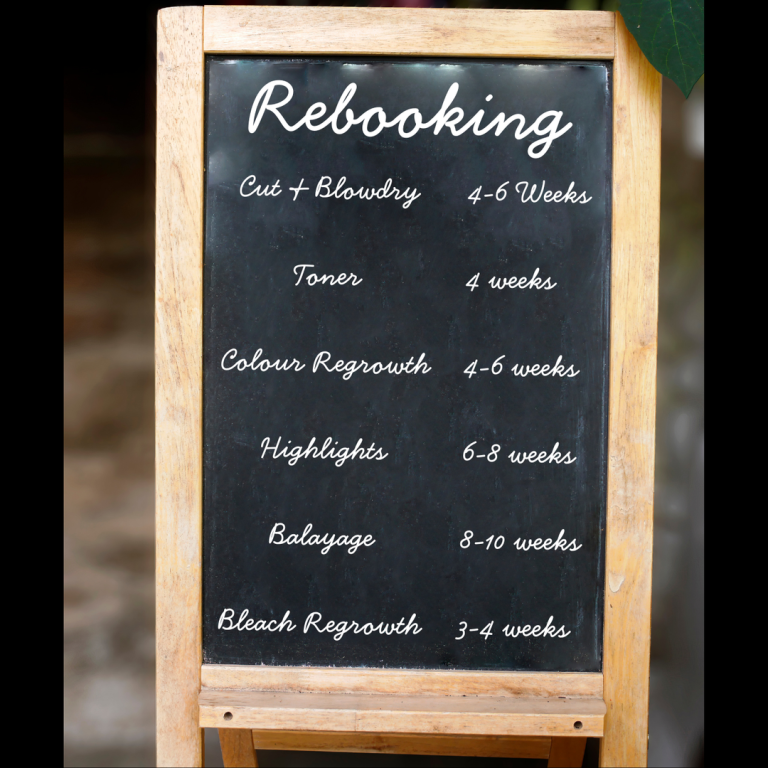 Rebooking
Cut + Blowdry 4-6 Weeks
Toner 4 weeks
Colour Regrowth 4-6 weeks
Highlights 6-8 weeks
Balayage 8-10 weeks
Bleach Regrowth 3-4 weeks